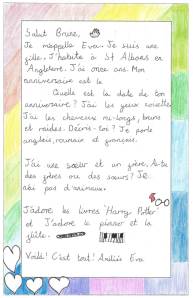 Salut Bruce,
Je m'appelle Eva. Je suis une
fille. J'habite à St Albans en
Angleterre. J'ai onze ans. Mon
anniversaire est le
Quelle est la date de ton
anniversaire? J'ai les yeux noisette
J'ai les cheveux mi-longs, bruns
et raides. Décris-toi? Je parle
anglais, roumain et français.
J'ai une sœur et un frère. As-tu
des frères ou des sœurs? Je
ai pas d'animaux.
J'adore les livres 'Harry Potter'
et J'adore le piano et la
flûte.
Voilà! C'est tout! Amitiés Eva